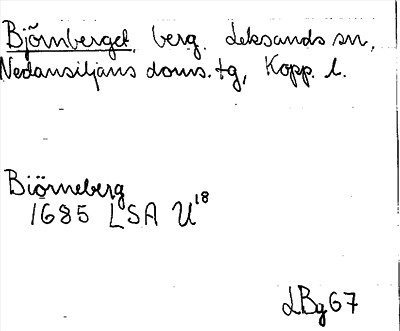 Björnberget, berg. Leksands sn,
Nedansiljans doms. tg, Kopp. l.
Biörneberg
1685 LSA U18
LBg 67